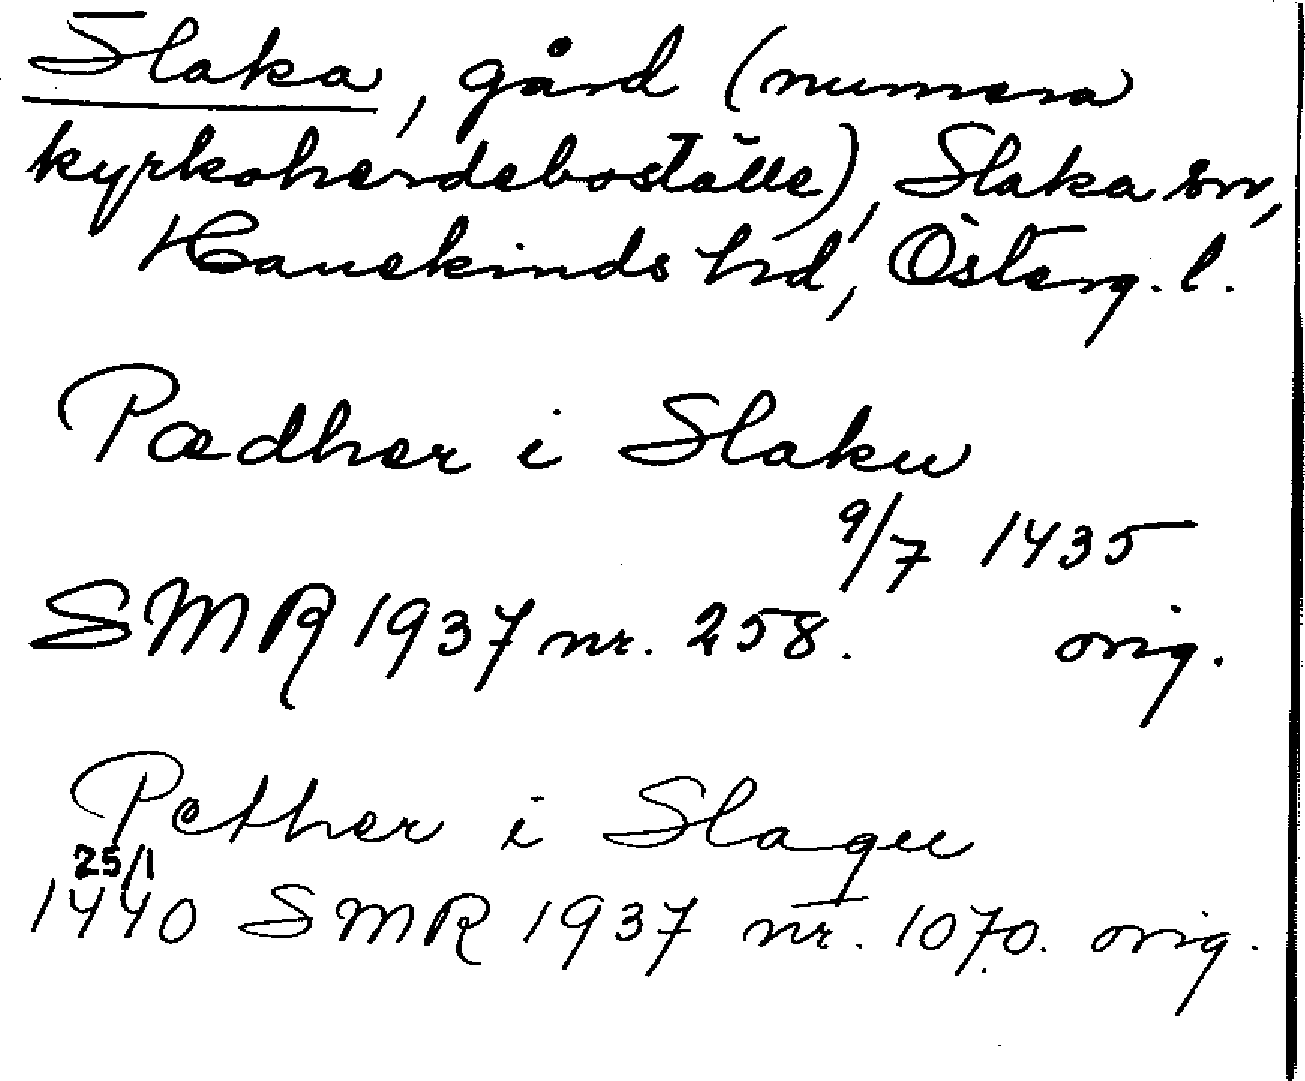 Slaka, gård (numera
kyrkoherdeboställe), Slaka sn,
Hanekinds hd, Österg. l.
Pædher i Slaku
9/7 1435
SMR 1937 nr. 258. orig.
Pether i Slaqu
25/1
1440 SMR 1937 nr. 1070. orig.